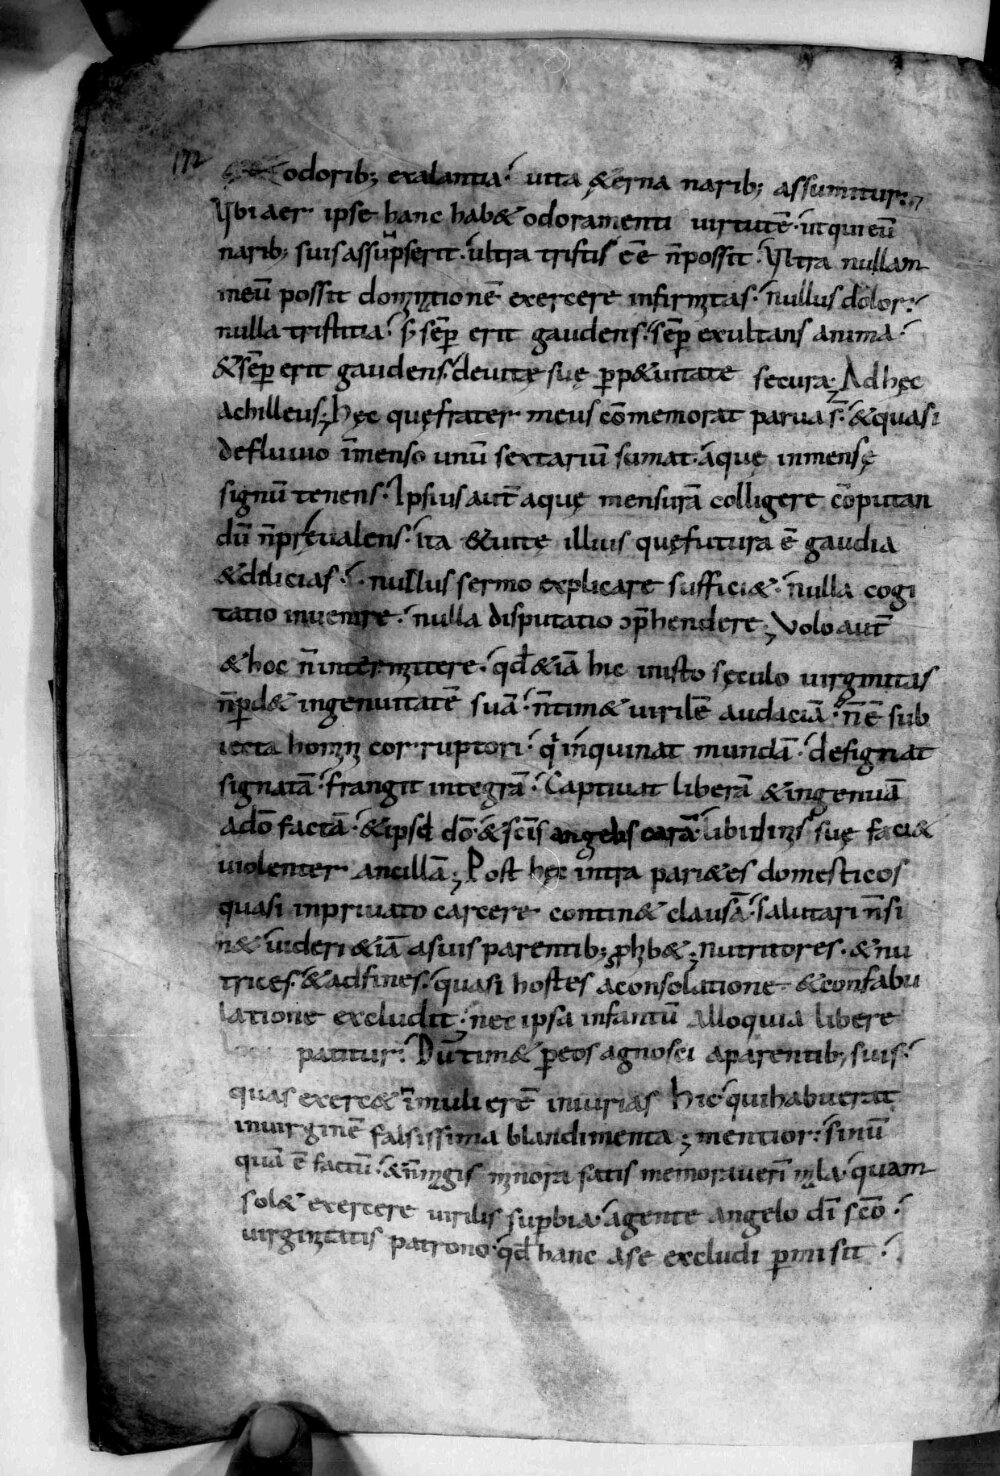 172
odorib; exalantia. uita &erna narib; assumitur.
Vbi aer ipse hanc hab& odoramenti uirtutē. ut qui eū
narib; suis assūpserit. ultra tristis eē n̄ possit. Vltra nullam
meū possit dominationē exercere infirmitas. nullus dolor.
nulla tristitia. s; sēp erit gaudens. sēp exultans anima.
& sēp erit gaudens. de uitę suę ꝑp&uitate secura. Ad hęc
achilleus; hęc quę frater meus cōmemorat parua s̄. & quasi
de fluuio īmenso unū sextariū sumat. aquę inmensę
signū tenens. Ipsius aut̄ aquę mensurā colligere cōputan
dū n̄ pręualens. ita & uitę illius quę futura ē gaudia
& dilicias. nullus sermo explicare suffici&. nulla cogi
tatio inuenire. nulla disputatio ↄp̄hendere; Volo aut̄
& hoc n̄ intermittere. qd̄ & iā hic in isto sęculo uirginitas
n̄ ꝑd& ingenuitatē suā. n̄ tim& uirilē audaciā. n̄ ē sub
iecta homini corruptori. q̇ inquinat mundā. designat
signatā. frangit integrā. Captiuat liberā & ingenuā
a dō factā. & ipsi dō & scīs angelis carā. libidinis suę faci&
uiolenter ancillā; Post hęc intra pari&es domesticos
quasi in priuato carcere contin& clausā. salutari n̄ si
n& uideri & iā a suis parentib; ꝓhib&; nutritores. & nu
trices. & adfines. quasi hostes a consolatione & confabu
latione excludit; nec ipsa infantū alloquia libere
patitur. Dū tim& ꝑ eos agnosci a parentib; suis.
quas exerc& ī mulierē iniurias hic qui habuerat
in uirginē falsissima blandimenta; mentior. si nū
quā ē factū. & n̄ magis minora satis memorauerī mala. quam
sol& exercere uirilis supbia. agente angelo dī scō.
uirginitatis patrono. qd̄ hanc a se excludi ꝑmisit.